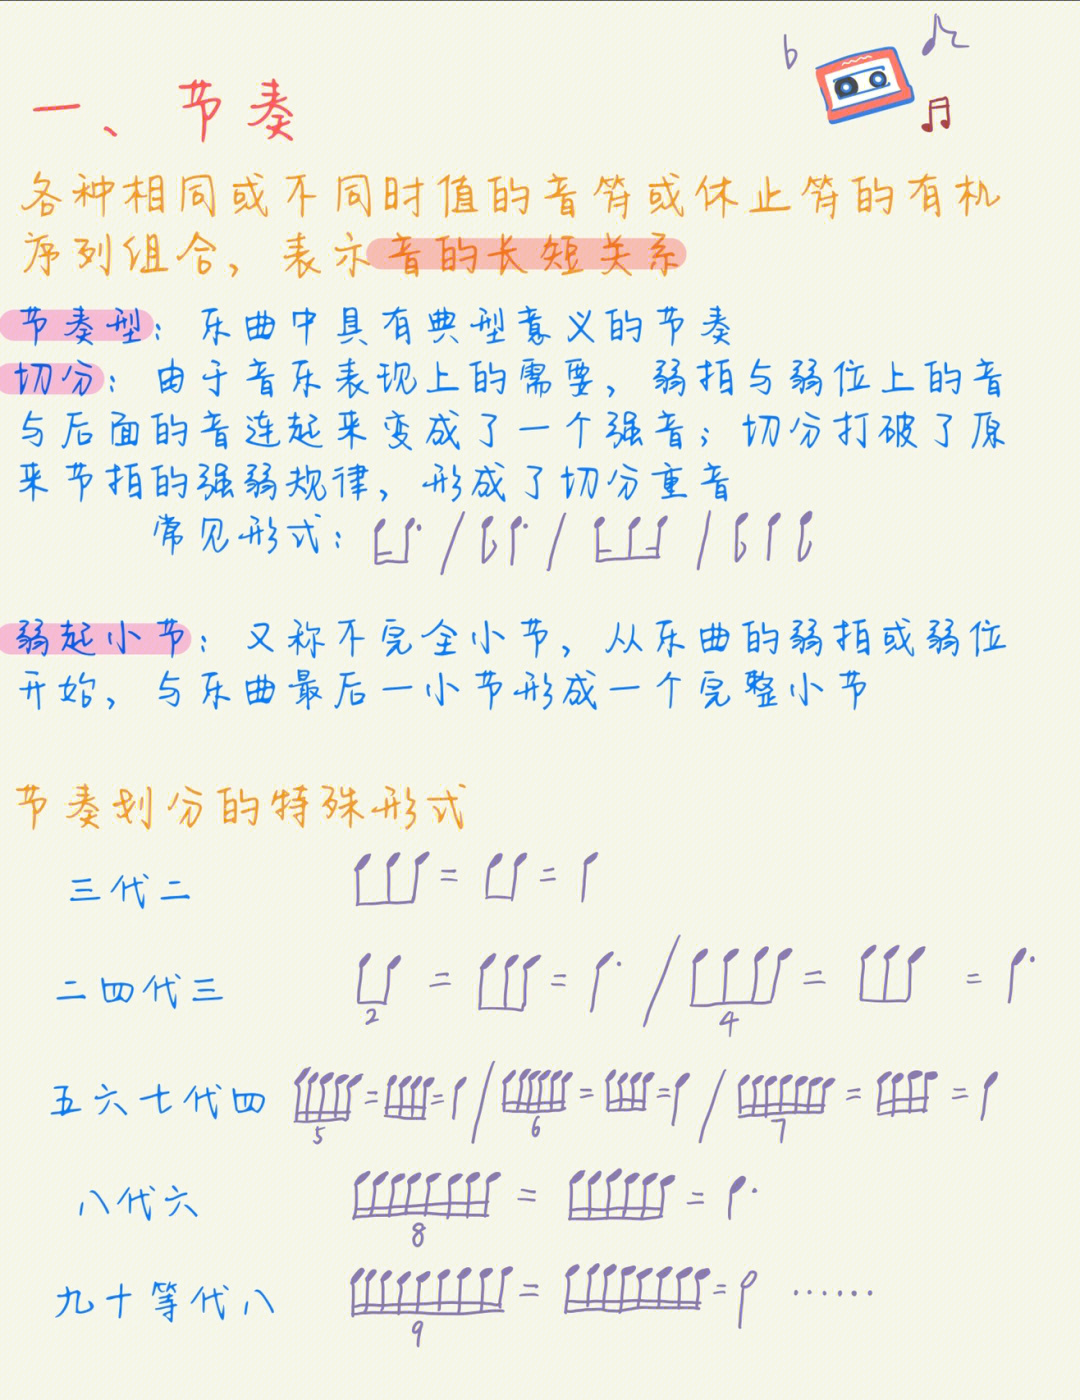 一、节奏
各种相同或不同时值的音符或休止符的有机
序列组合，表示音的长短关系
节奏型：乐曲中具有典型意义的节奏
切分：由于音乐表现上的需要，弱拍与弱位上的音
与后面的音连起来变成了一个强音；切分打破了原
来节拍的强弱规律，形成了切分重音
常见形式：
弱起小节：又称不完全小节，从乐曲的弱拍或弱位
开始，与乐曲最后一小节形成一个完整小节
节奏划分的特殊形式
三代二 = =
二四代三 2 = = / 4 = =
五六七代四 5 = = / 6 = = / 7 = =
八代六 8 = =
九十等代八 9 = = ……